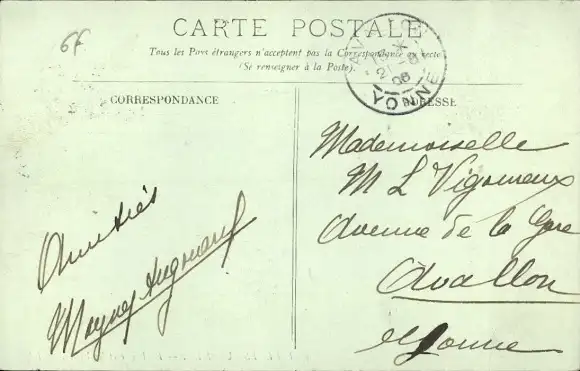 6f
CARTE POSTALE
Tous les Pays étrangers n'acceptent pas la Correspondance au recto
(Se renseigner à la Poste).
CORRESPONDANCE
ADRESSE
YONNE
Amitiés
Mademoiselle
M L Vigoureux
Avenue de la Gare
Avallon
Yonne